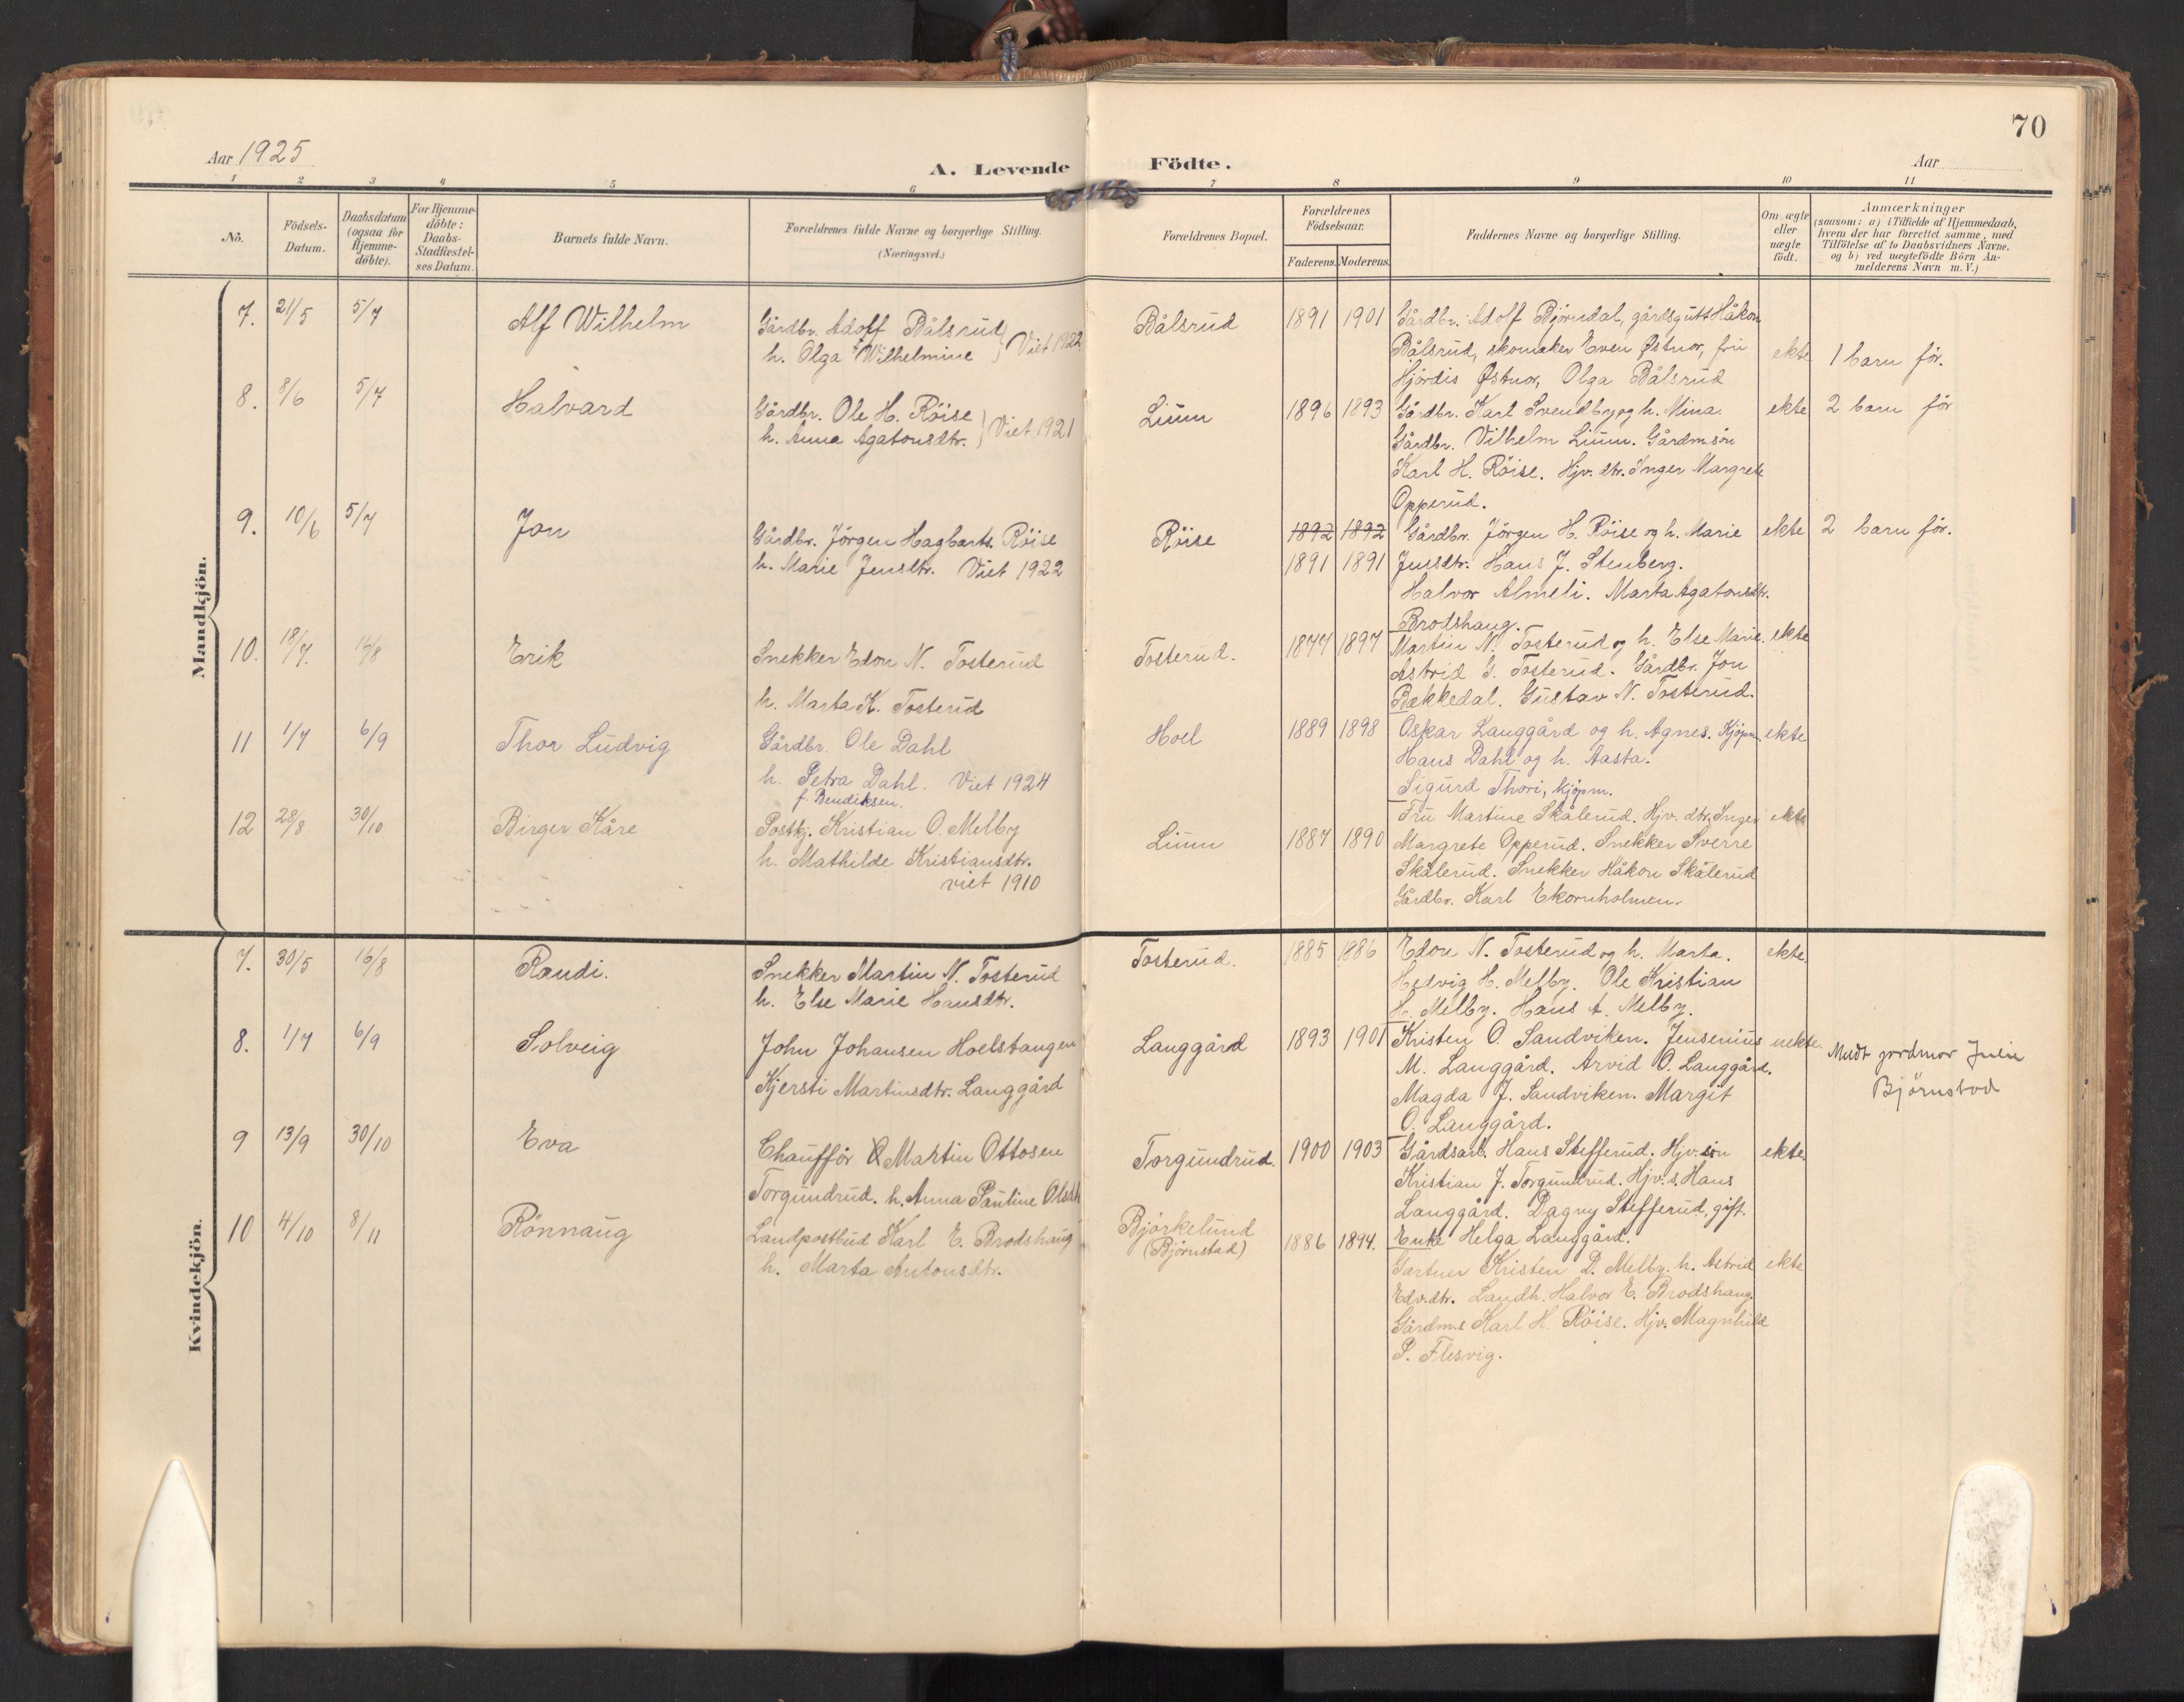 70
Aar 1925
A. Levende Födte.
Aar
1 2 3 4 5 6 7 8 9 10 11
No.
Födsels-
Datum.
Daabsdatum
(ogsaa for
Hjemme-
döbte).
For Hjemme-
döbte:
Daabs-
Stadfæstel-
ses Datum.
Barnets fulde Navn.
Forældrenes fulde Navne og borgerlige Stilling.
(Næringsvei.)
Forældrenes Bopæl.
Forældrenes
Födselsaar.
Faderens. Moderens.
Faddernes Navne og borgerlige Stilling.
Om ægte
eller
uægte
födt.
Anmærkninger
(saasom: a) i Tilfælde af Hjemmedaab,
hvem der har forrettet samme, med
Tilföielse af to Daabsvidners Navne.
og b) ved uægtefödte Börn An-
melderens Navn m. V.)
Mandkjön.
7. 21/5 5/7 Alf Wilhelm
Gårdbr. Adolf Bålsrud
h. Olga Wilhelmine } Viet 1922
Bålsrud 1891 1901
Gårdbr. Adolf Bjørndal, gårdsgutt Håkon
Bålsrud, skomaker Even Østnor, fru
Hjördis Østnor, Olga Bålsrud
ekte 1 barn før.
8. 8/6 5/7 Halvard
Gårdbr. Ole H. Röise
h. Anna Agatonsdtr. } Viet 1921
Lium 1896 1893
Gårdbr. Karl Svendby og h. Mina.
Gårdbr. Vilhelm Lium. Gårdmsön
Karl H. Röise. Hjv. dtr. Inger Margrete
Opperud.
ekte 2 barn før
9. 10/6 5/7 Jon
Gårdbr. Jörgen Hagbarts. Röise
h. Marie Jensdtr. Viet 1922
Röise 1892 1892
1891 1891
Gårdbr. Jörgen H. Röise og h. Marie
Jensdtr. Hans J. Stenberg.
Halvor Almeli. Marta Agatonsdtr.
Brodshaug.
ekte 2 barn før.
10. 18/7. 16/8 Erik
Snekker Edon N. Tosterud
h. Marta K. Tosterud
Tosterud. 1877 1897
Martin N. Tosterud og h. Else Marie.
Astrid G. Tosterud. Gårdbr. Jon
Bækkedal. Gustav N. Tosterud.
ekte
11 1/7 6/9 Thor Ludvig
Gårdbr. Ole Dahl
h. Petra Dahl. Viet 1924
f. Bendiksen.
Hoel 1889 1898
Oskar Langgård og h. Agnes. Kjøpm.
Hans Dahl og h. Aasta.
Sigurd Thori, kjøpm.
ekte
12 28/8 30/10 Birger Kåre
Postkj. Kristian O. Melby
h. Mathilde Kristiansdtr.
viet 1910
Lium 1887 1890
Fru Martine Skålerud. Hjv. dtr. Inger
Margrete Opperud. Snekker Sverre
Skålerud. Snekker Håkon Skålerud
Gårdbr. Karl Ekornholmen.
ekte
Kvindekjön.
7. 30/5 16/8 Randi.
Snekker Martin N. Tosterud
h. Else Marie Hansdtr.
Tosterud. 1885 1886
Edon N. Tosterud og h. Marta.
Hedvig H. Melby. Ole Kristian
H. Melby. Hans A. Melby.
ekte.
8. 1/7 6/9 Solveig
John Johansen Hoelstangen
Kjersti Martinsdtr. Langgård
Langgård 1893 1901
Kristen O. Sandviken. Jensenius
M. Langgård. Arvid O. Langgård.
Magda J. Sandviken. Margit
O. Langgård.
uekte.
Meldt jordmor Julie
Björnstad
9 13/9 30/10 Eva
Chaufför Martin Ottosen
Torgundrud. h. Anna Pauline Olsdtr
Torgundrud. 1900 1903
Gårdsarb. Hans Stefferud. Hjv. sön
Kristian J. Torgundrud. Hjv. s. Hans
Langgård. Dagny Stefferud, gift.
Enke Helga Langgård.
ekte.
10 4/10 8/11 Rönnaug
Landpostbud Karl E. Brodshaug
h. Marta Antonsdtr.
Björkelund
(Björnstad)
1886 1894.
Gartner Kristen D. Melby. h. Astrid
Edv.dtr. Landh. Halvor E. Brodshaug.
Gårdm.s Karl H. Röise. Hjv. Magnhild
P. Flesvig.
ekte